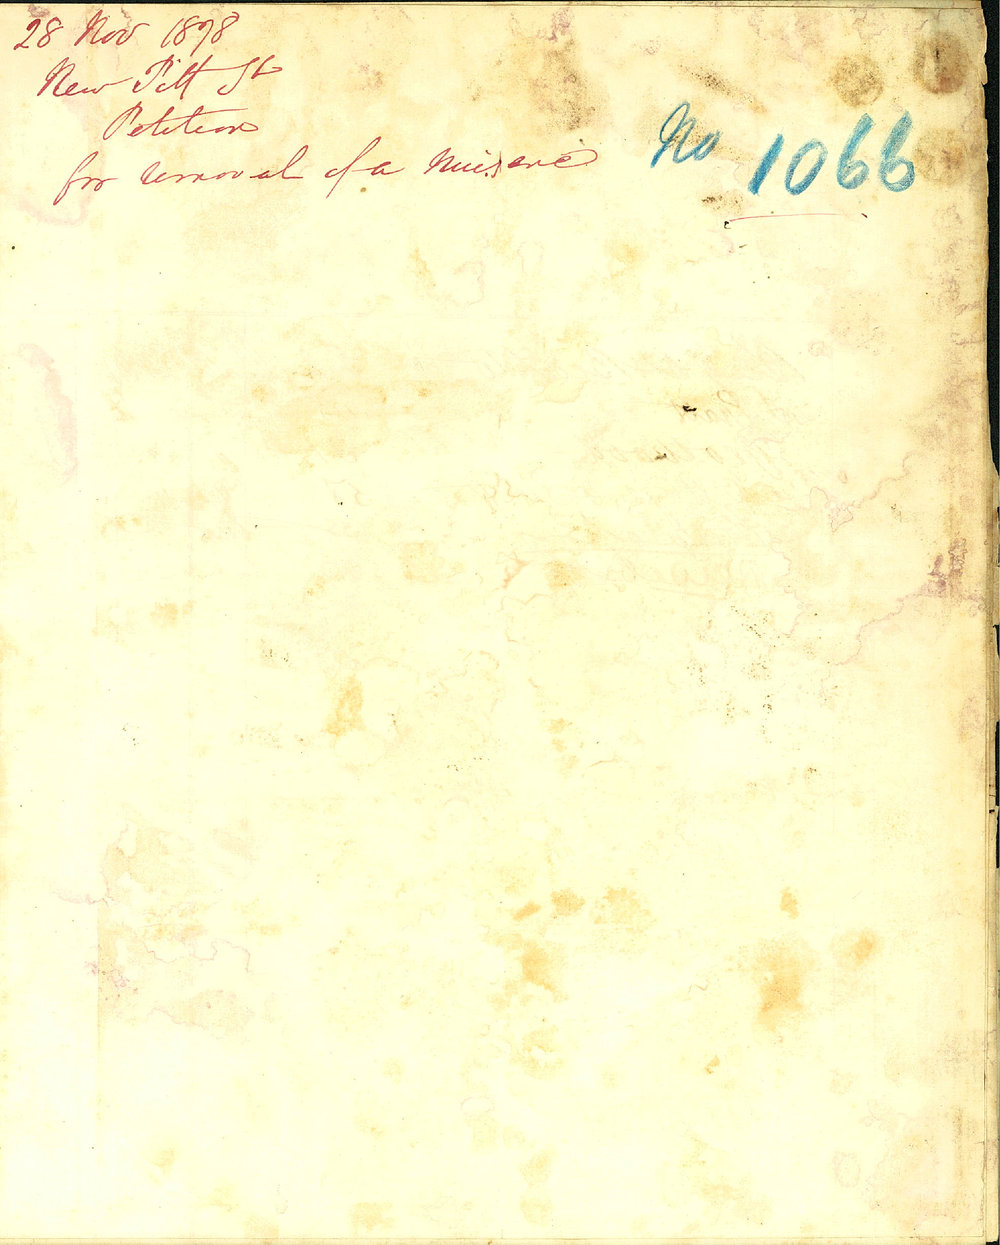 28 Nov 1878
New Pitt St
Petition
for removal of a Nuisance
No 1066